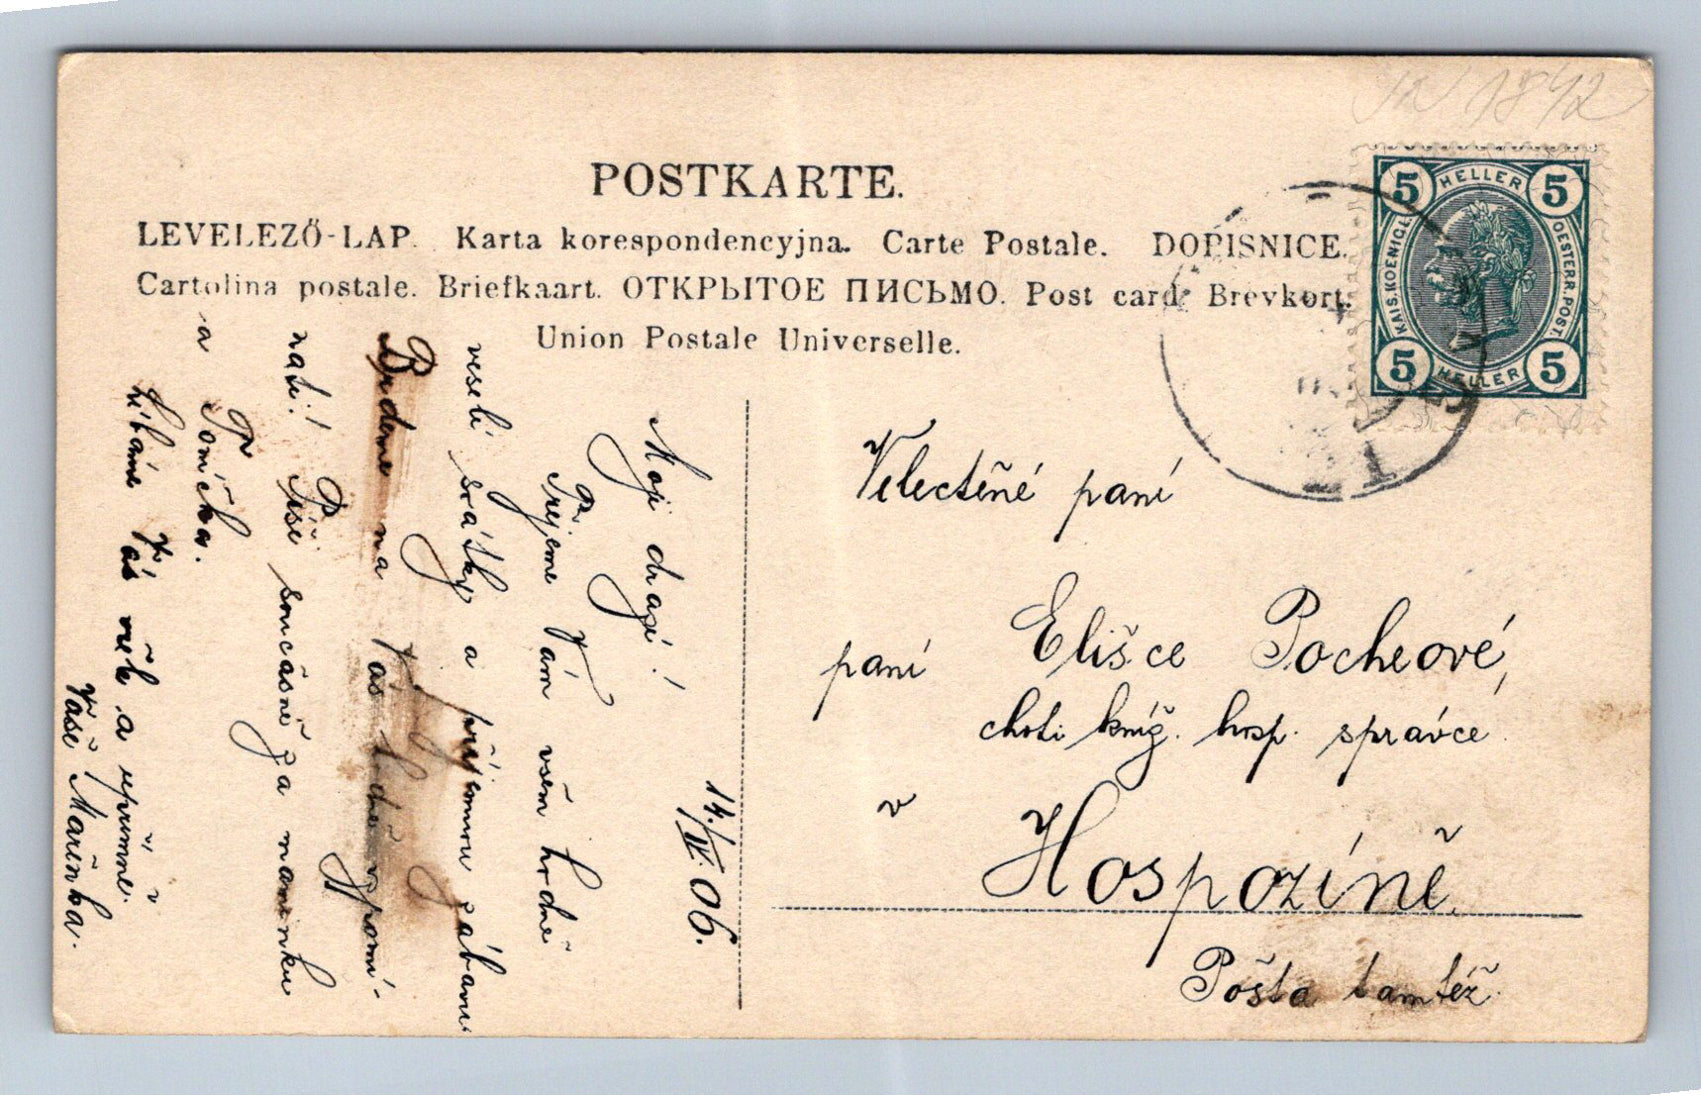 POSTKARTE.
LEVELEZŐ-LAP. Karta korespondencyjna. Carte Postale. DOPISNICE.
Cartolina postale. Briefkaart. ОТКРЫТОЕ ПИСЬМО. Post card. Brevkort.
Union Postale Universelle.
1842
5 HELLER 5
KAIS. KOENIGL. OESTERR. POST.
5 HELLER 5
14./IV. 06.
Moji drazí!
Přejeme Vám všem hodně
veselé svátky a příjemnou zábavu.
Budeme na Vás hodně vzpomí-
nati! Píši současně za maminku
a Tomíčka.
Líbáme Vás všech a upřímně.
Vaše Mařenka.
Velectěné paní
paní Elišce Pocheové,
choti kníž. hosp. správce
v Hospozíně.
Pošta tamtéž.